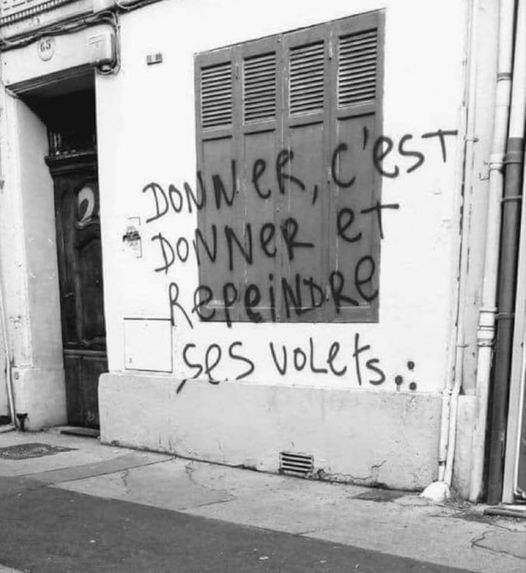 65
DONNER, c'esT
DONNER eT
RePeiNDRe
ses voLeTs.: